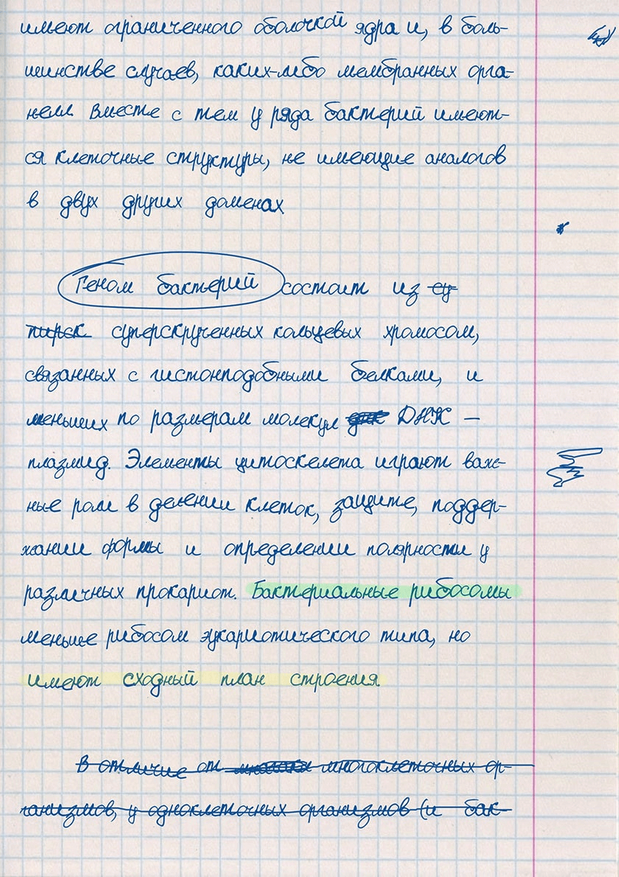 имеют ограниченного оболочкой ядра и, в боль-
шинстве случаев, каких-либо мембранных орга-
нелл Вместе с тем у ряда бактерий имеют-
ся клеточные структуры, не имеющие аналогов
в двух других доменах
Геном бактерий состоит из су
суперскрученных кольцевых хромосом,
связанных с гистонподобными белками, и
меньших по размерам молекул ДНК —
плазмид. Элементы цитоскелета играют важ-
ные роли в делении клеток, защите, поддер-
жании формы и определении полярности у
различных прокариот. Бактериальные рибосомы
меньше рибосом эукариотического типа, но
имеют сходный план строения
В отличие от многоклеточных ор-
ганизмов, у одноклеточных организмов (и бак-